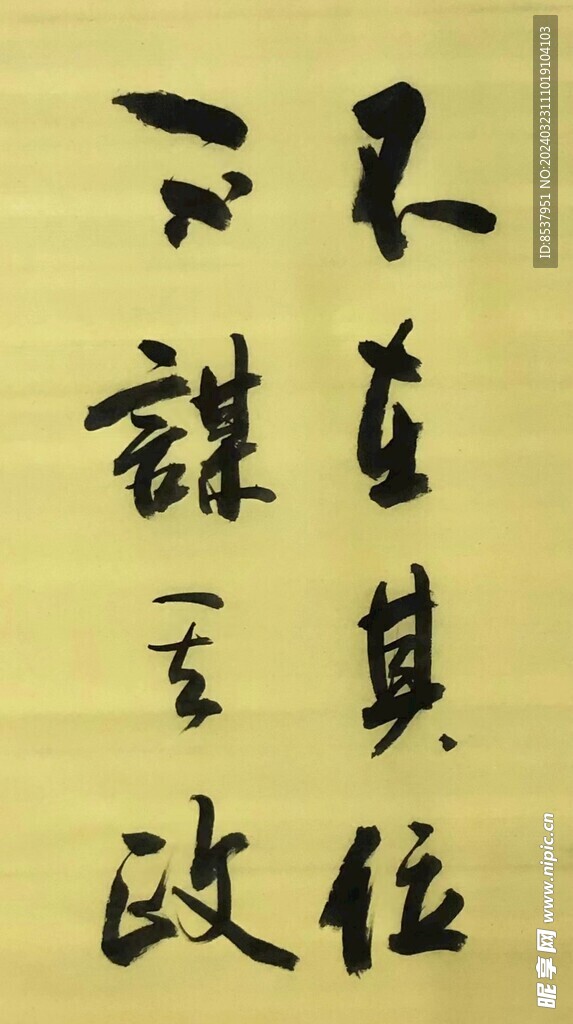 不在其位
不謀其政
ID:8537951 NO:20240323111019104103
昵享网 www.nipic.cn